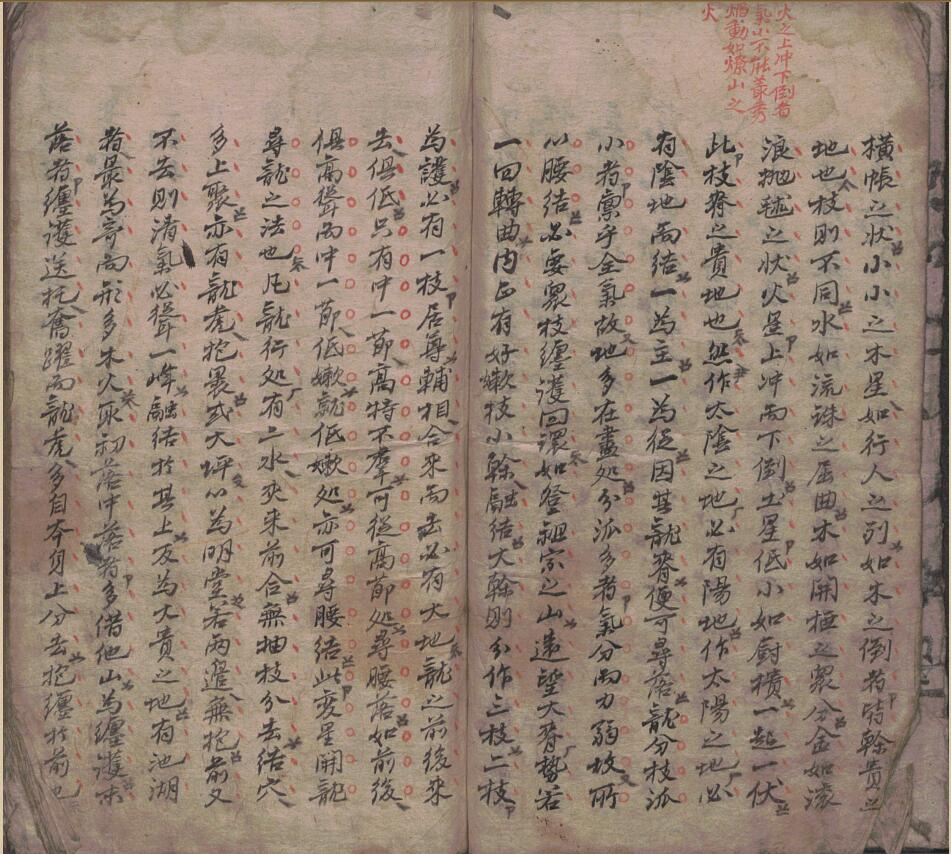 火之上冲下倒者
氣小不能叢秀
焰動如燎山之
火
橫帳之状小小之木星如行人之列如木之倒者皆幹貴之
地也枝則不同水如流珠之屈曲木如開極之眾分金如滚
浪拋毬之状火星上冲而下倒土星低小如厨櫃一起一伏
此枝脊之貴地也然作太陰之地必有陽地作太陽之地必
有陰地而結一為主一為從因其龍脊便可尋落龍分枝派
小者禀乎全氣故地多在盡処分派多者氣分而力弱故所
以腰結必要眾枝纏護回環如登祖宗之山遠望大脊勢若
一回轉曲内正有好嫩枝小幹融結大幹則分作三枝二枝
為護必有一枝居尊輔相合來而去必有大地龍之前後來
去俱低只有中一節高特不羣可從高節処尋腰落如前後
俱高聳而中一節低嫩就低嫩処亦可尋腰結此変星開龍
尋龍之法也凡龍行処有二水夾来前合無抽枝分去結穴
多上聚亦有龍虎抱裹或大坪以為明堂若兩邉無抱前又
不去則清氣必聳一峰融結於其上反為大貴之地有池湖
者最為奇而形多木火取初落中落者多借他山為纏護末
落者纏護送托奮躍而龍虎多自本身上分去抱纏於前也